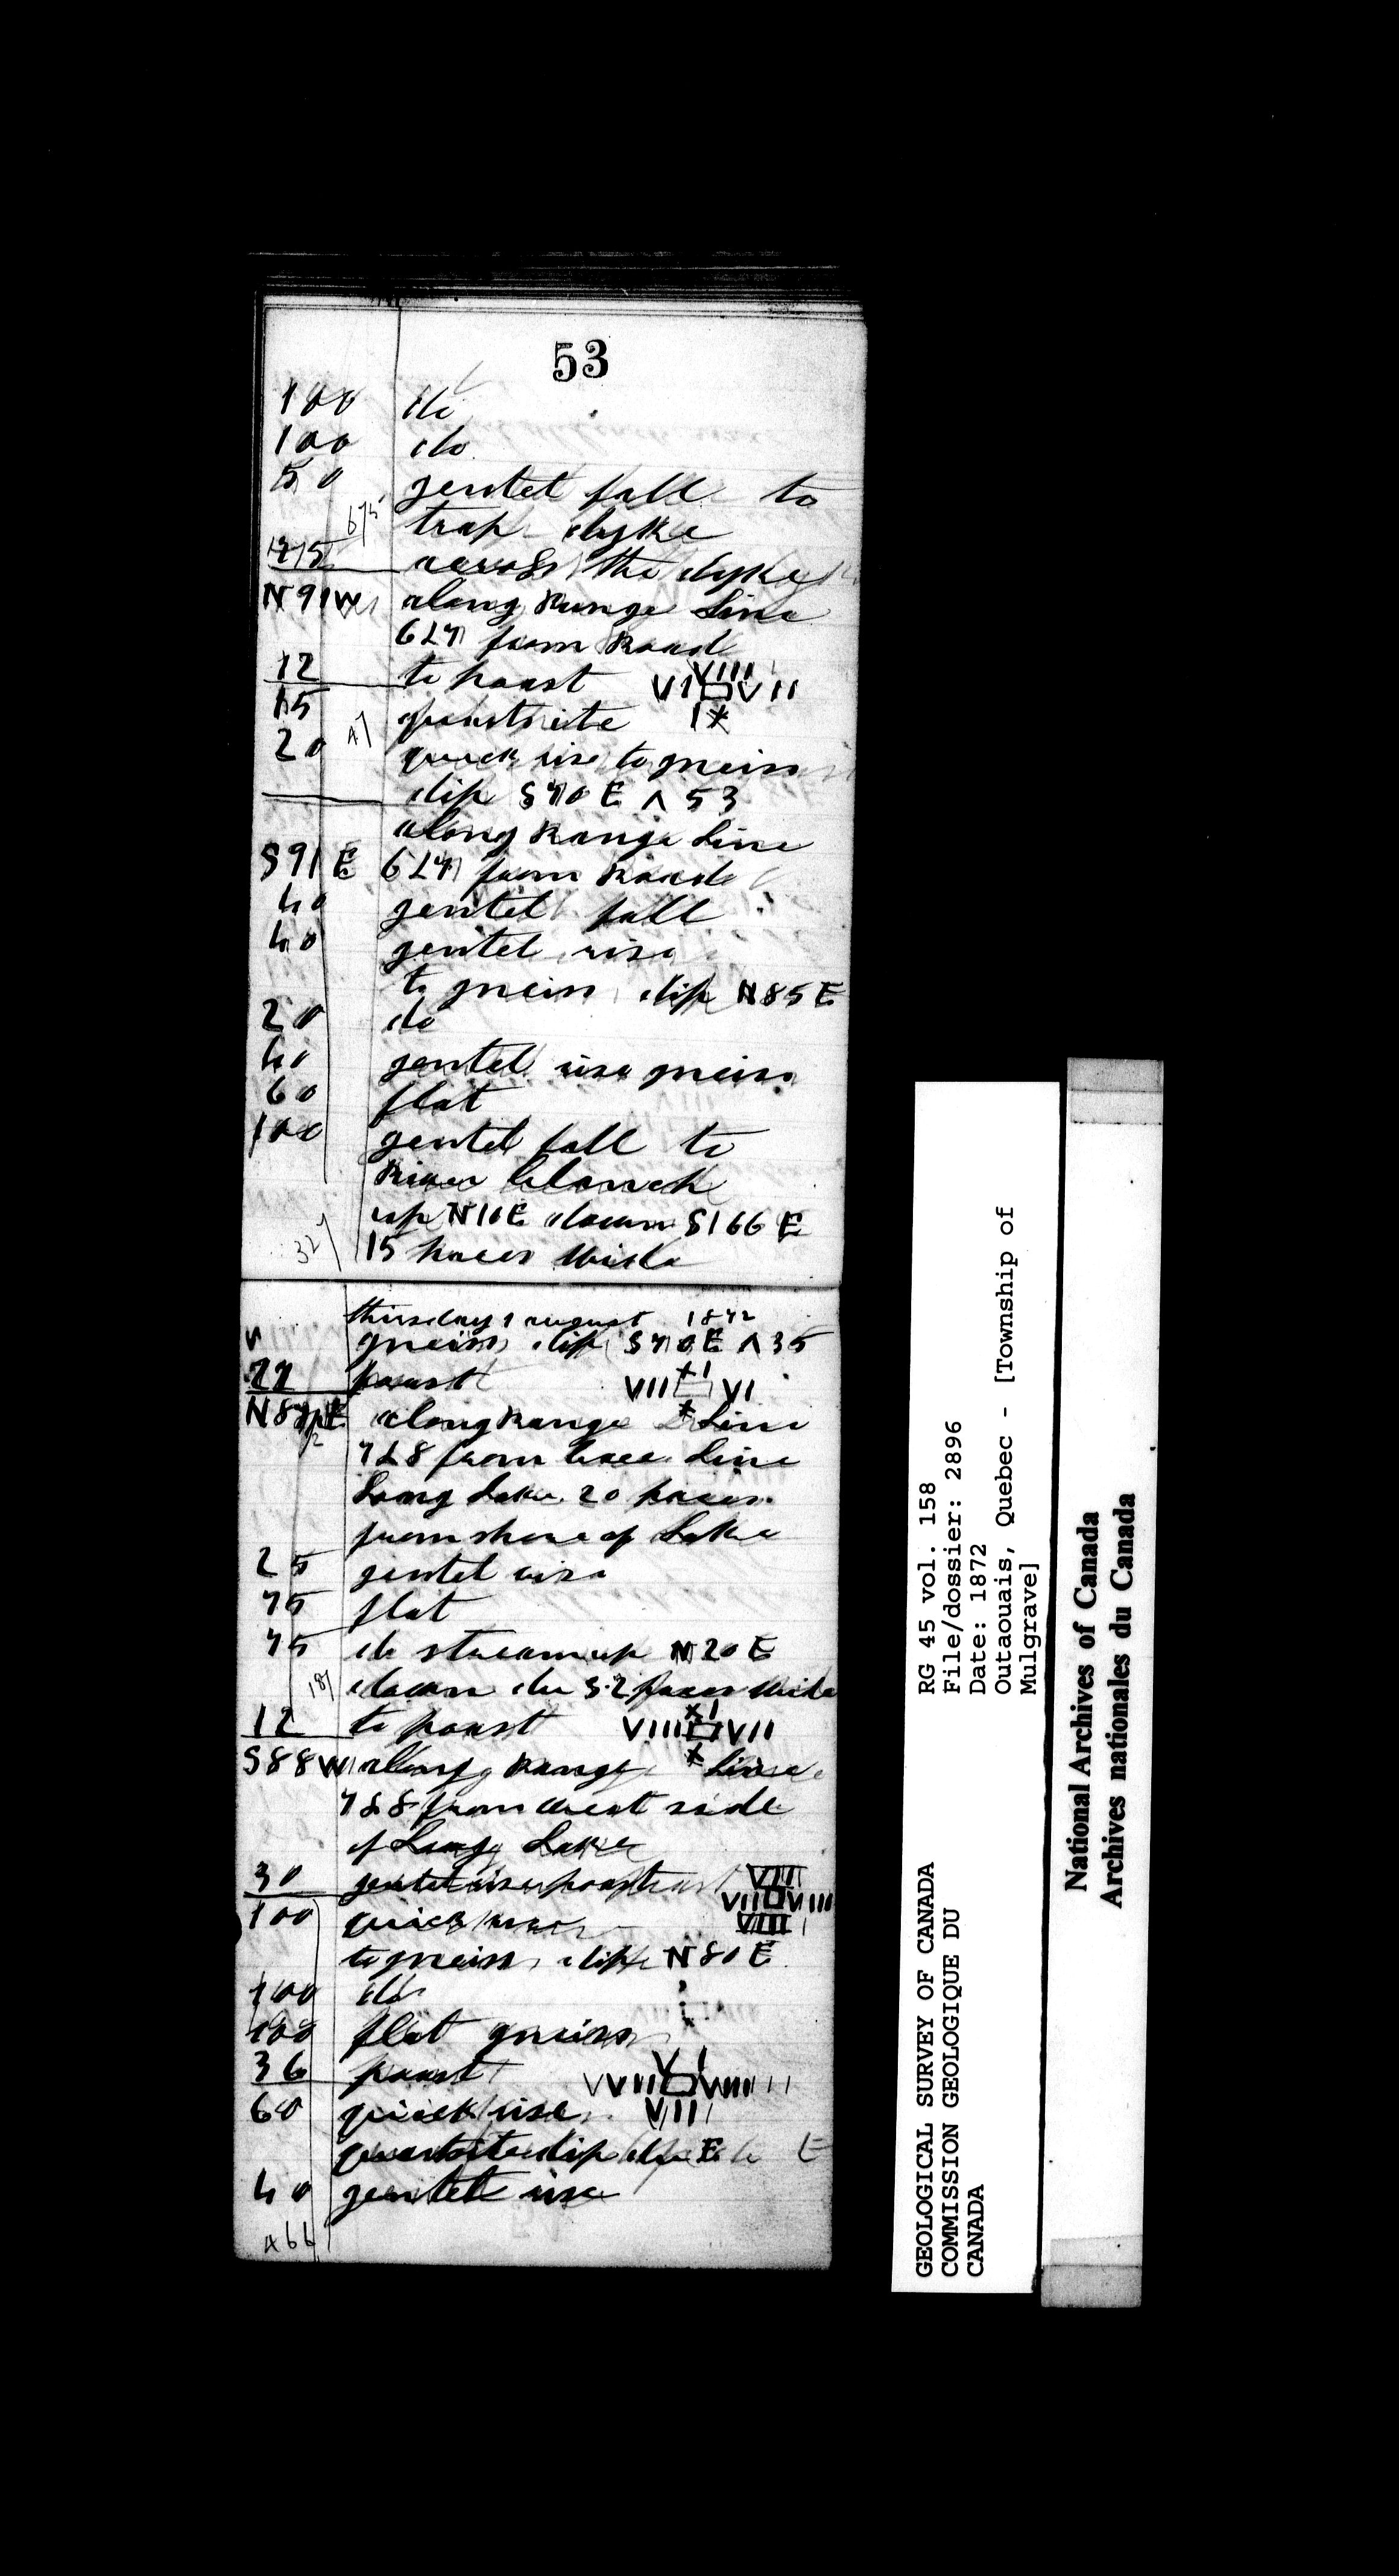 53
100 do
100 do
50 gentel fall to
675
trap dyke
across the dyke
N91W along Range Line
6 L 7 from Road
12 to poast VIIII VI VII
15 quartsite IX
47
20 quick rise to gneiss
dip S70E Λ 53
along Range Line
S91E 6 L 7 from Road
40 gentel fall
40 gentel rise
to gneiss dip N85E
20 do
40 gentel rise gneiss
60 flat
100 gentel fall to
River blanch
up N10E down S166E
32
15 paces wide
thursday 1 august 1872
gneiss dip S70E Λ35
22 poast VII XI VI
along Range X Line
7 L 8 from Line
Long Lake 20 paces
from shore of Lake
25 gentel rise
75 flat
75 do stream up N20E
187
down do S 2 paces wide
12 to poast VIIII XI VII
S88W along Range X Line
7 & 8 from west side
of Long Lake
30 gentel rise poast VIII VII VIIII VIIII
100 quick rise
to gneiss dip N80E
100 do
100 flat gneiss
36 poast
60 quick rise VIII
quartsite dip do E
40 gentel rise
GEOLOGICAL SURVEY OF CANADA
COMMISSION GEOLOGIQUE DU
CANADA
RG 45 vol. 158
File/dossier: 2896
Date: 1872
Outaouais, Quebec - [Township of
Mulgrave]
National Archives of Canada
Archives nationales du Canada